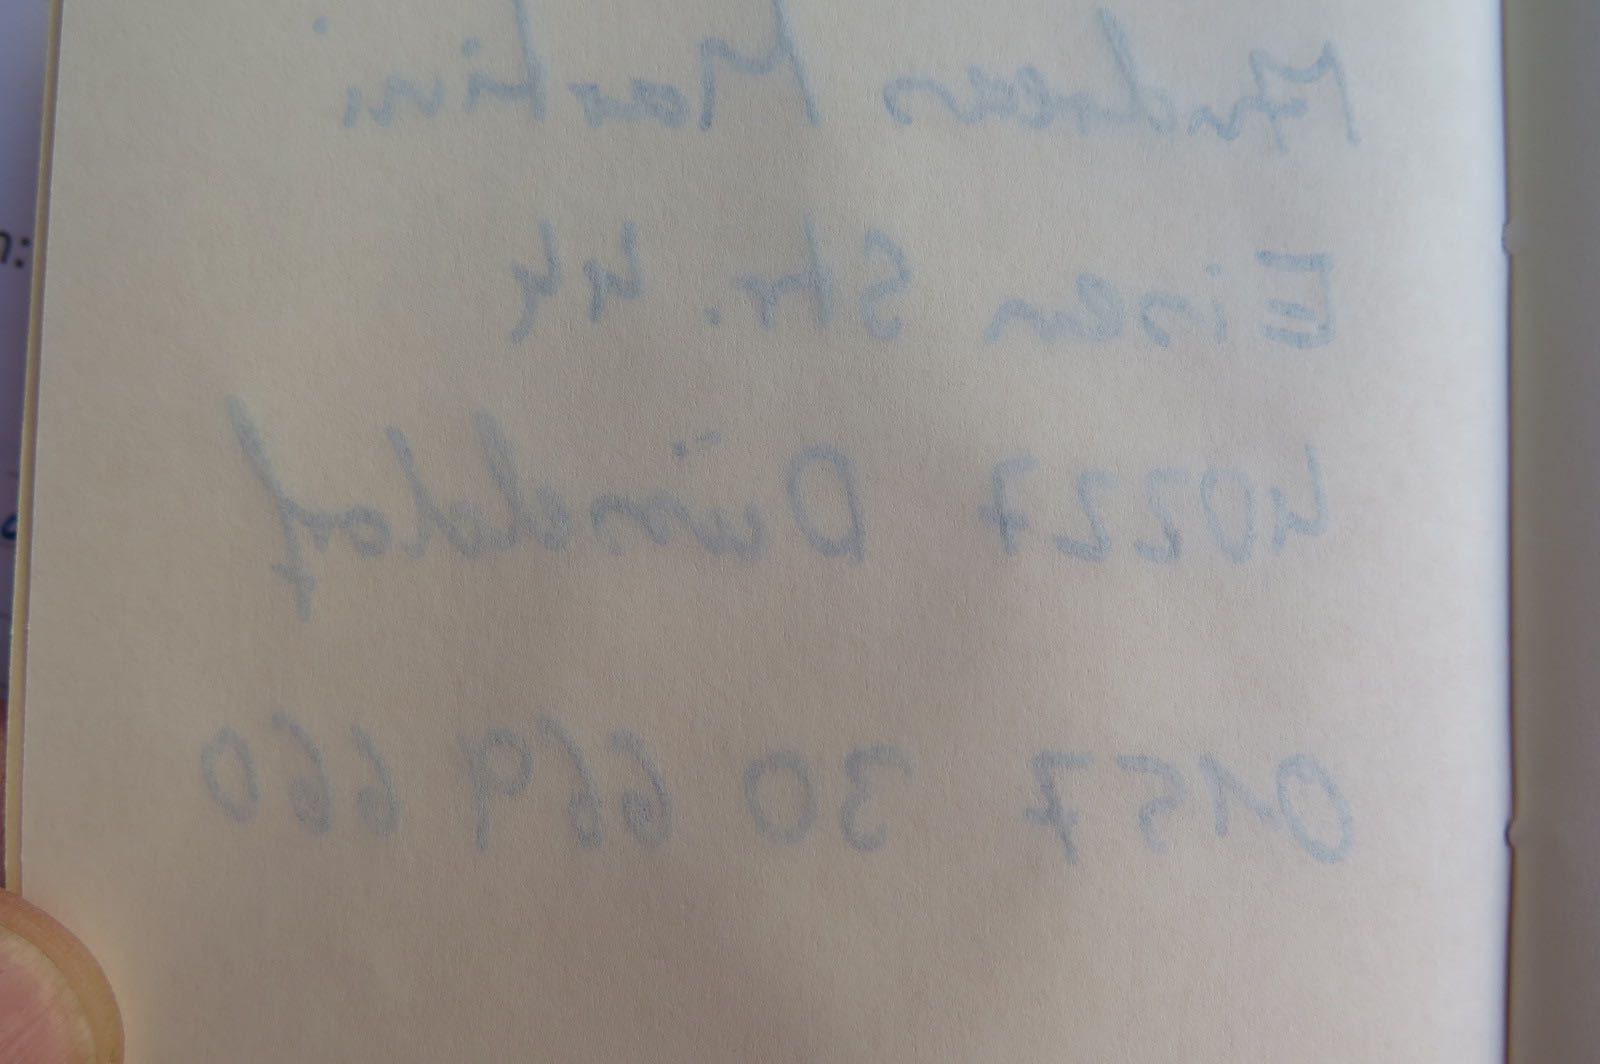 Andreas Martini
Eisen Str. 44
40227 Düsseldorf
0157 30 669 660
n: